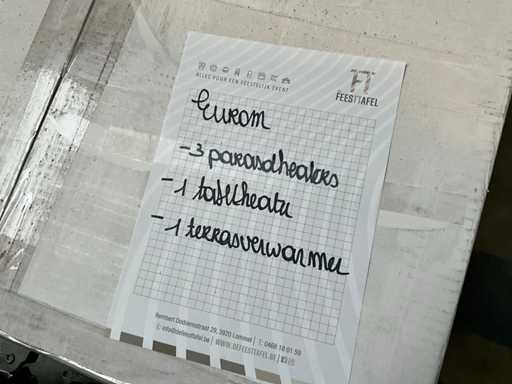 ALLES VOOR EEN FEESTELIJK EVENT
FEESTTAFEL
Eurom
- 3 parasolheaters
- 1 tafelheater
- 1 terrasverwarmer
Rembert Dodoensstraat 29, 3920 Lommel | T: 0468 18 01 59
E: info@defeesttafel.be | WWW.DEFEESTTAFEL.BE |